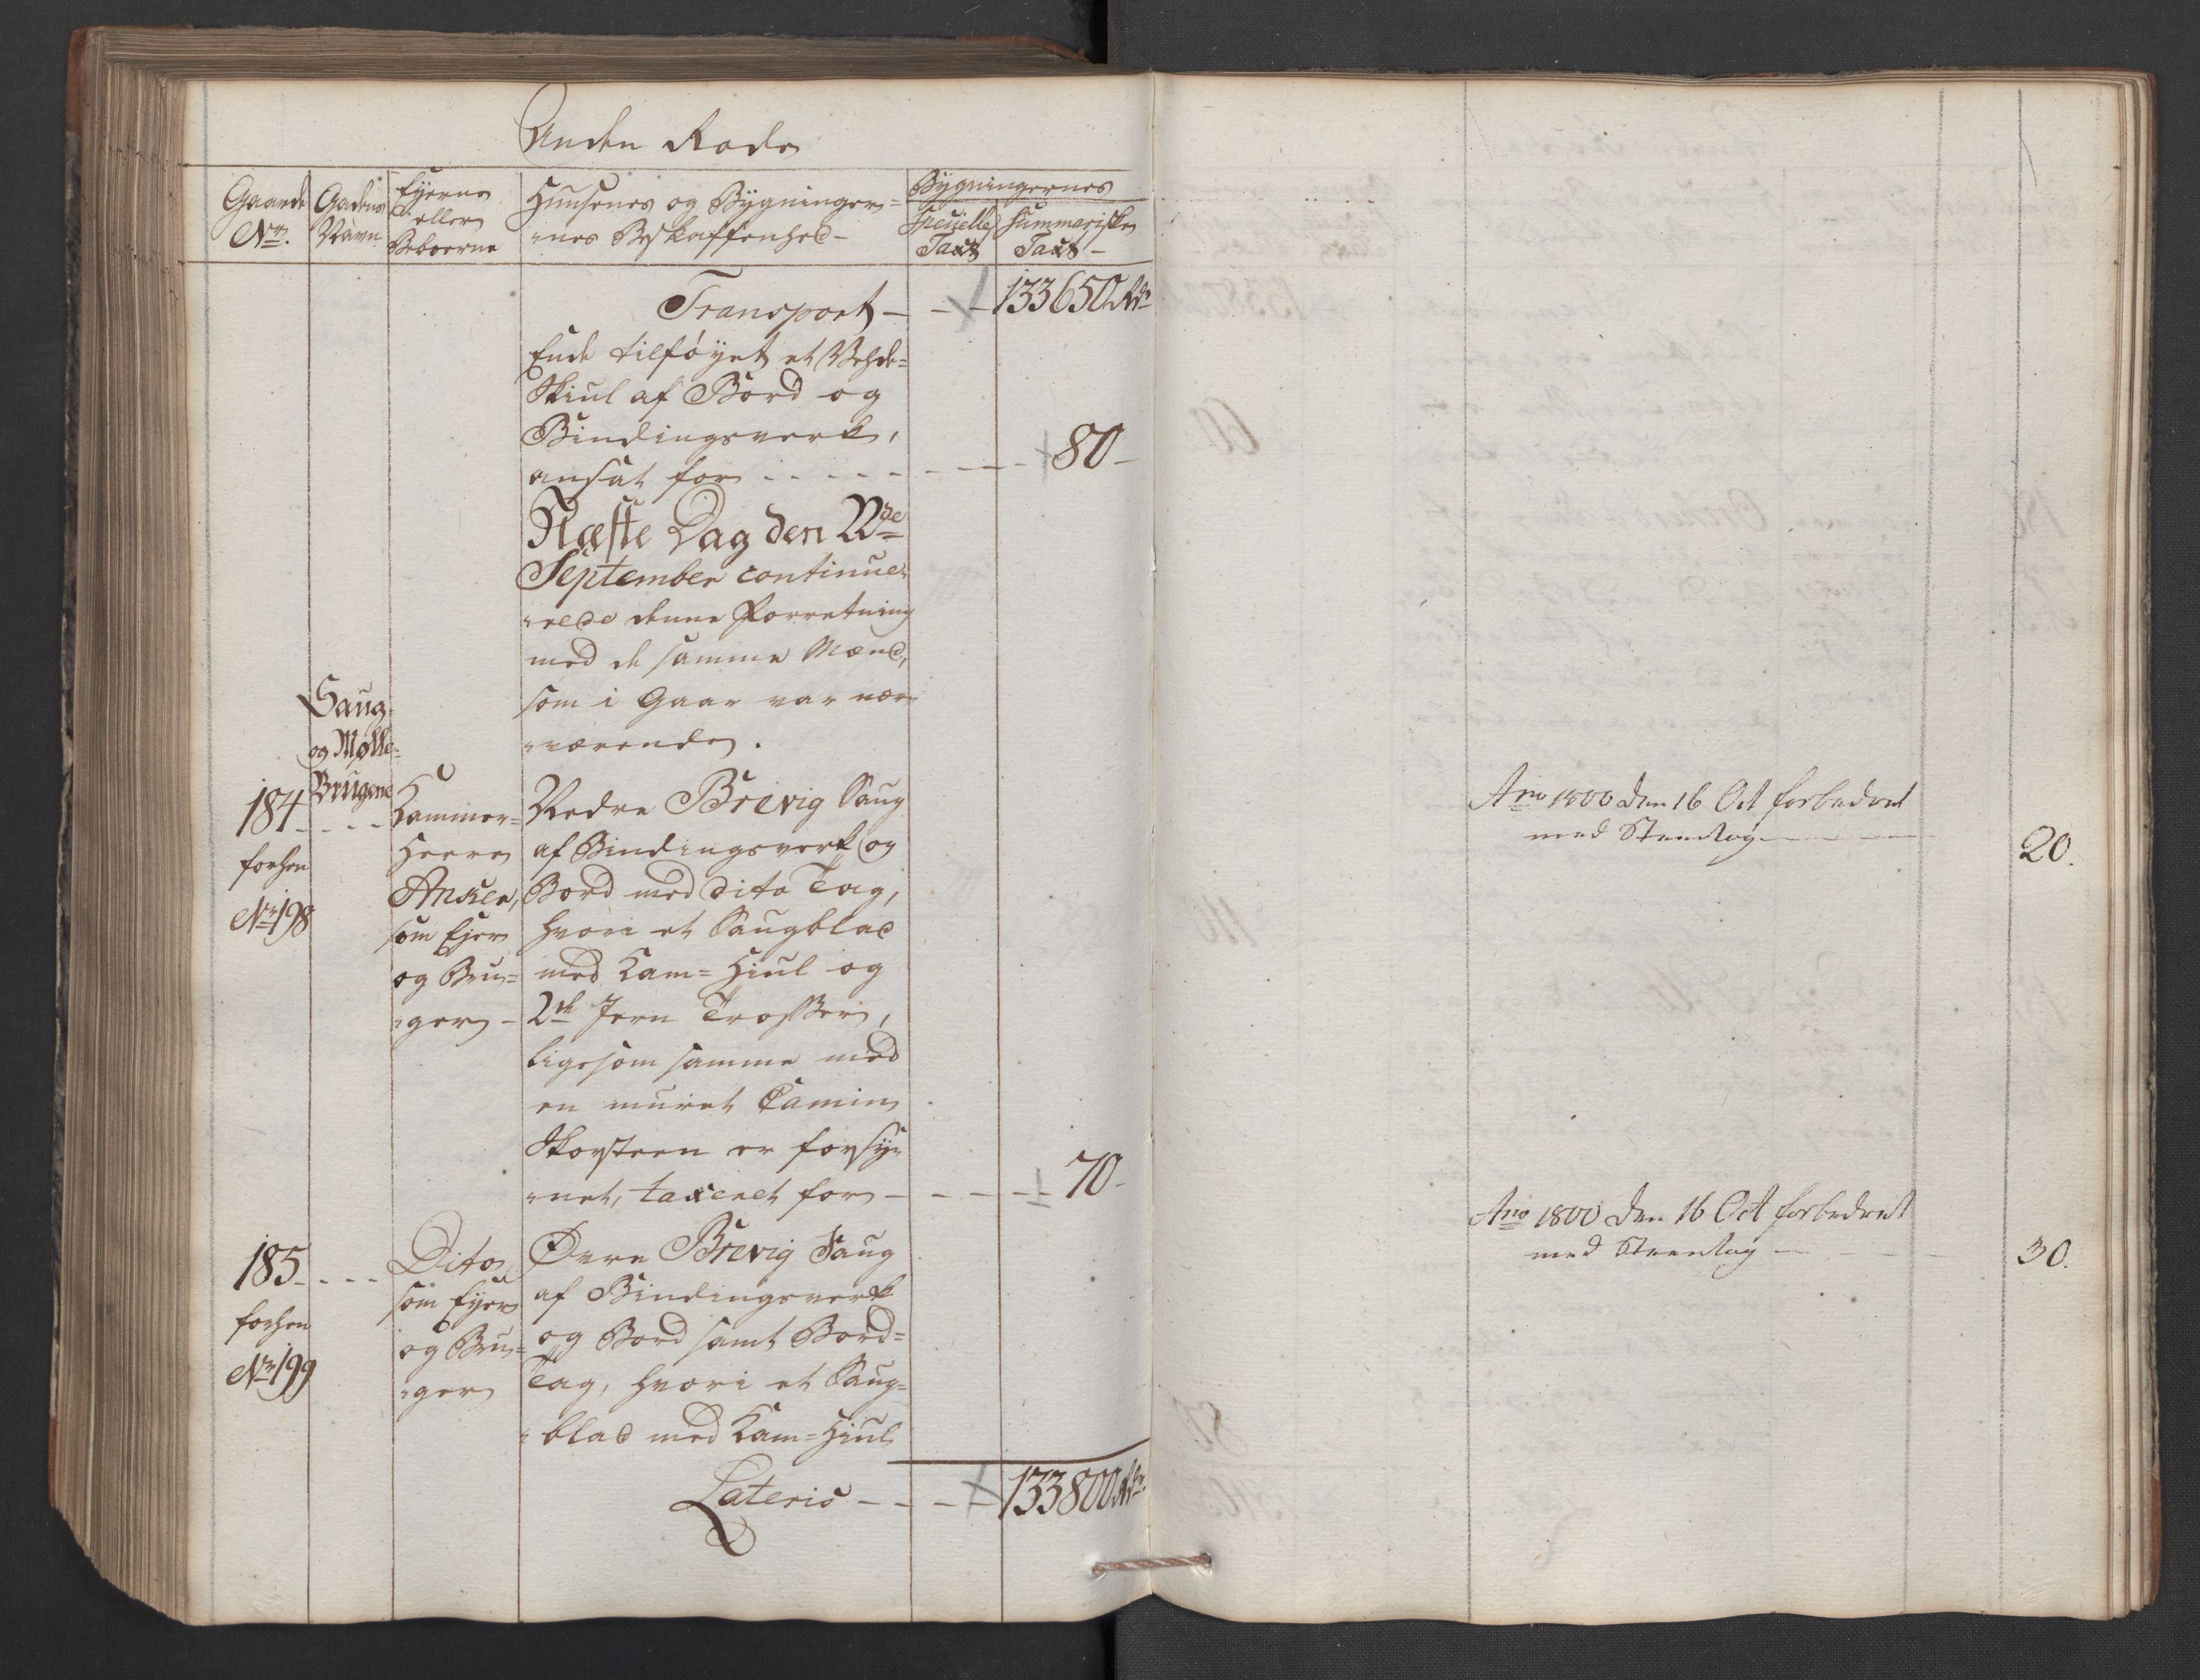 Anden Rode
Gaarde No.
Gadens Navn
Ejerne eller Beboerne
Huusenes og Bygninger=
=nes Beskaffenhed -
Bygningernes
Specielle Taxt
Summariske Taxt -
Transport - - - 133650 Rdr
Ende tilføyet et Vehde=
Skiul af Bord og
Bindingsverk,
ansat for - - - - 80 -
Næste Dag den 22de
September continue=
=rede denne Forretning
med de samme Mænd,
som i Gaar var nær=
=værende.
Saug-
og Mølle=
Brugene
184 - - - -
forhen
No 198
Kammer=
Herre
Anker,
som Ejer
og Bru=
=ger -
Nedre Brevig Saug
af Bindingsverk og
Bord med dito Tag,
hvori et Saugblad
med Kam=Hiul og
2de Jern Trosser,
ligesom samme med
en muret Camin
Skorsteen er forsy=
=net, taxeret for - - - - 70 -
185 - - - -
forhen
No 199
Dito
som Ejer
og Bru=
=ger
Øvre Brevig Saug
af Bindingsverk
og Bord samt Bord=
Tag, hvori et Saug=
=blad med Kam=Hiul
Lateris - - - - 133800 Rdr.
Ano 1800 den 16 Oct forbedret
med Steenlag - - - 20.
Ano 1800 den 16 Oct forbedret
med Steenlag - - - 30.